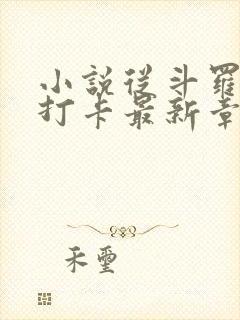 小説從斗羅
打卡最新章
禾璽